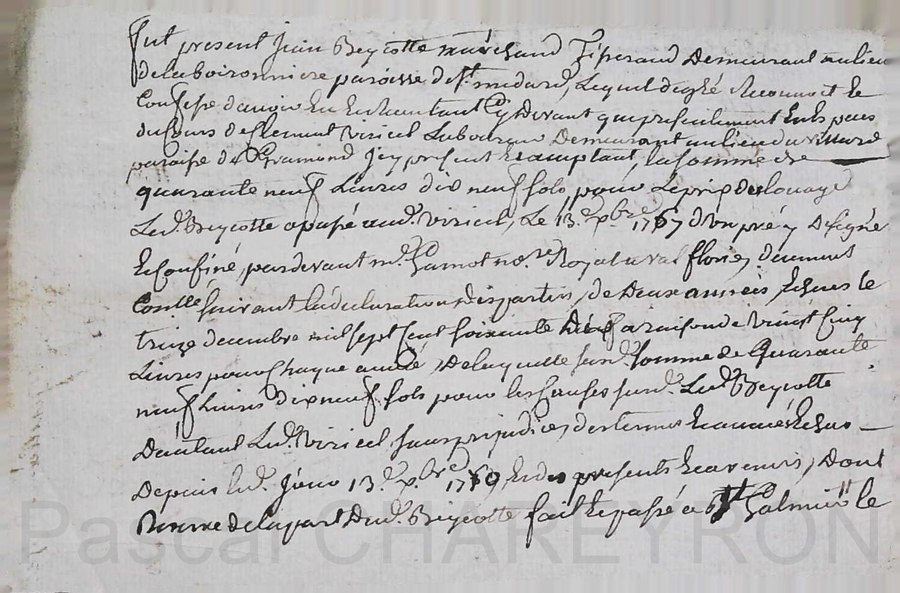 fut present Jean Beycotte marchand Tisserand Demeurant au lieu
delaboironniere paroisse de st. medard, Lequel de gré Reconnoit et
Confesse d'avoir Eu Et devant quy presentement
de Clermont Viricel Laboureur Demeurant au lieu du villard
paroisse de Gramond Icy present Et acceptant, la somme de
quarante neuf Livres dix neuf sols, pour Le prix du louage
Led. Beycotte a passé aud. viricel, Le 13e. xbre 1767 d'un pré y Designé
Et Confiné, pardevant me. Gamot nore. Royal a val florie, deument
Conllé suivant la declaration des parties, de Deux années, Echues le
treize decembre mil sept Cent soixante a raison de vingt Cinq
Livres pour chaque année, De laquelle susd. somme de Quarante
neuf Livres dix neuf sols pour les Causes susd. Led. Beycotte
D'autant Led. viricel sans prejudice des termes Echus
Depuis led. jour 13e. xbre 1769, Et des presents Et avenirs, Dont
de la part Dud. Beycotte fait Et passé a st Galmier le
Pascal CHAREYRON